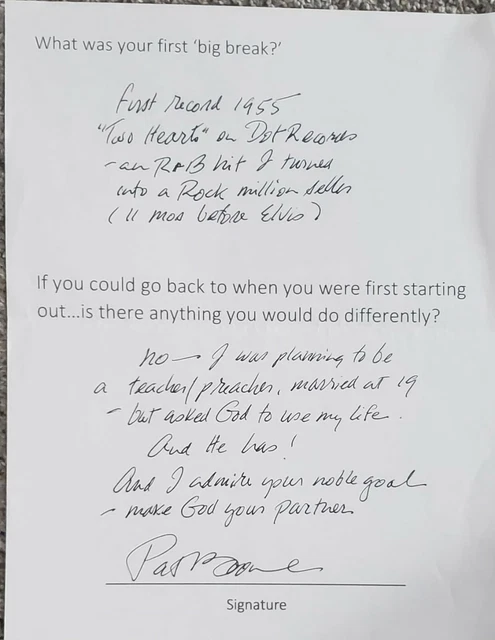 What was your first ‘big break?’
first record 1955
"Two Hearts" on Dot Records
- an R&B hit I turned
into a Rock million seller
(11 mos before Elvis)
If you could go back to when you were first starting
out...is there anything you would do differently?
no — I was planning to be
a teacher/preacher, married at 19
- but asked God to use my life.
And He has!
And I admire your noble goal
- make God your partner
Pat Boone
Signature